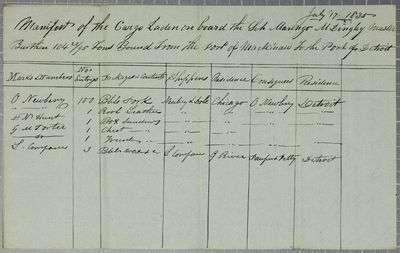 July 17 1835
Manifest of the Cargo Laden on board the Sch Marengo M Dingley Master
Burthen 104 Tons Bound from the Port of Mackinaw to the Port of Detroit
Marks & Numbers No. Packages & Contents Shippers Residence Consignees Residence
O Newberry 100 Bbls Pork Newberry & Dole Chicago O Newberry Detroit
" " 1 Roll Leather " " " "
H N Hunt 1 Box Sundries " " " "
1 Chest " " " "
1 Trunk " " " "
3 Bbls S Compare G River Detroit